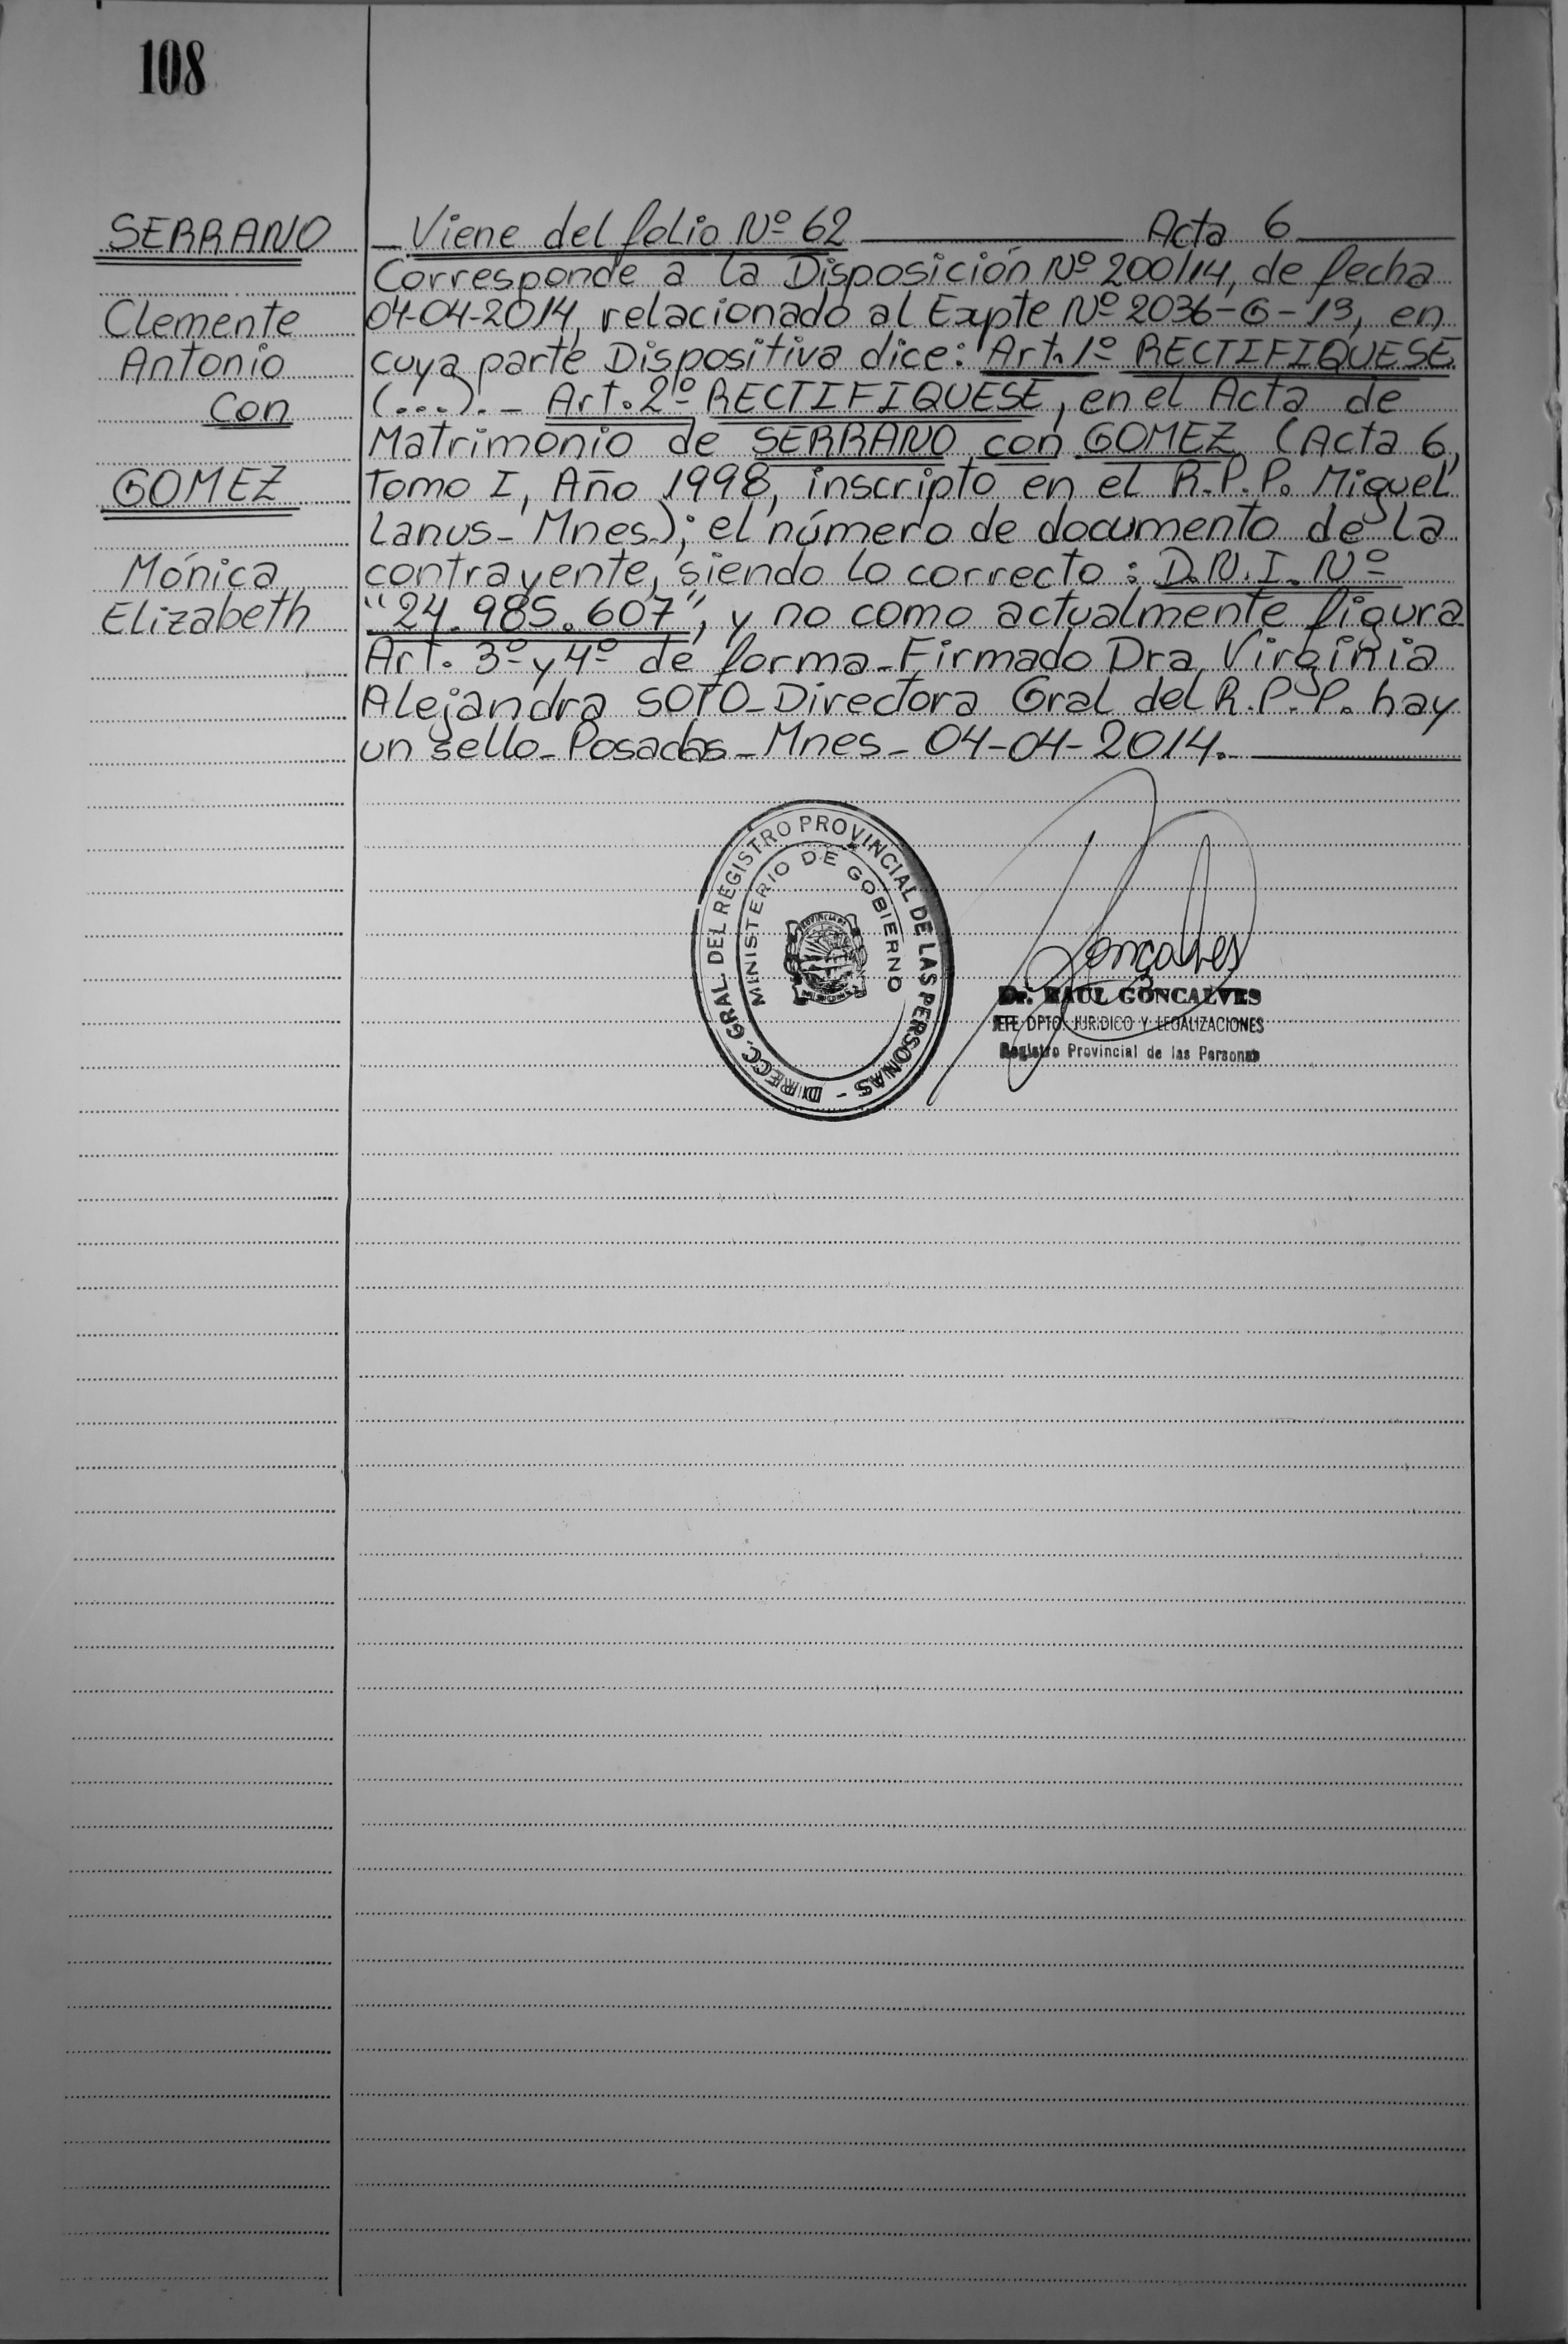 108
SERRANO
Clemente
Antonio
Con
GOMEZ
Mónica
Elizabeth
Viene del folio Nº 62 Acta 6
Corresponde a la Disposición Nº 200/14, de fecha
04-04-2014, relacionado al Expte Nº 2036-G-13, en
cuya parte Dispositiva dice: Art. 1º RECTIFIQUESE.
(...).- Art. 2º RECTIFIQUESE, en el Acta de
Matrimonio de SERRANO con GOMEZ (Acta 6,
Tomo I, Año 1998, inscripto en el R.P.P. Miguel
Lanus- Mnes); el número de documento de la
contrayente, siendo lo correcto: D.N.I. Nº
"24.985.607", y no como actualmente figura
Art. 3º y 4º de forma-Firmado Dra. Virginia
Alejandra SOTO-Directora Gral del R.P.P. hay
un sello-Posadas-Mnes-04-04-2014.
DIRECC. GRAL. DEL REGISTRO PROVINCIAL DE LAS PERSONAS -
MINISTERIO DE GOBIERNO
Goncalves
Dr. RAUL GONCALVES
JEFE DPTO. JURIDICO Y LEGALIZACIONES
Registro Provincial de las Personas